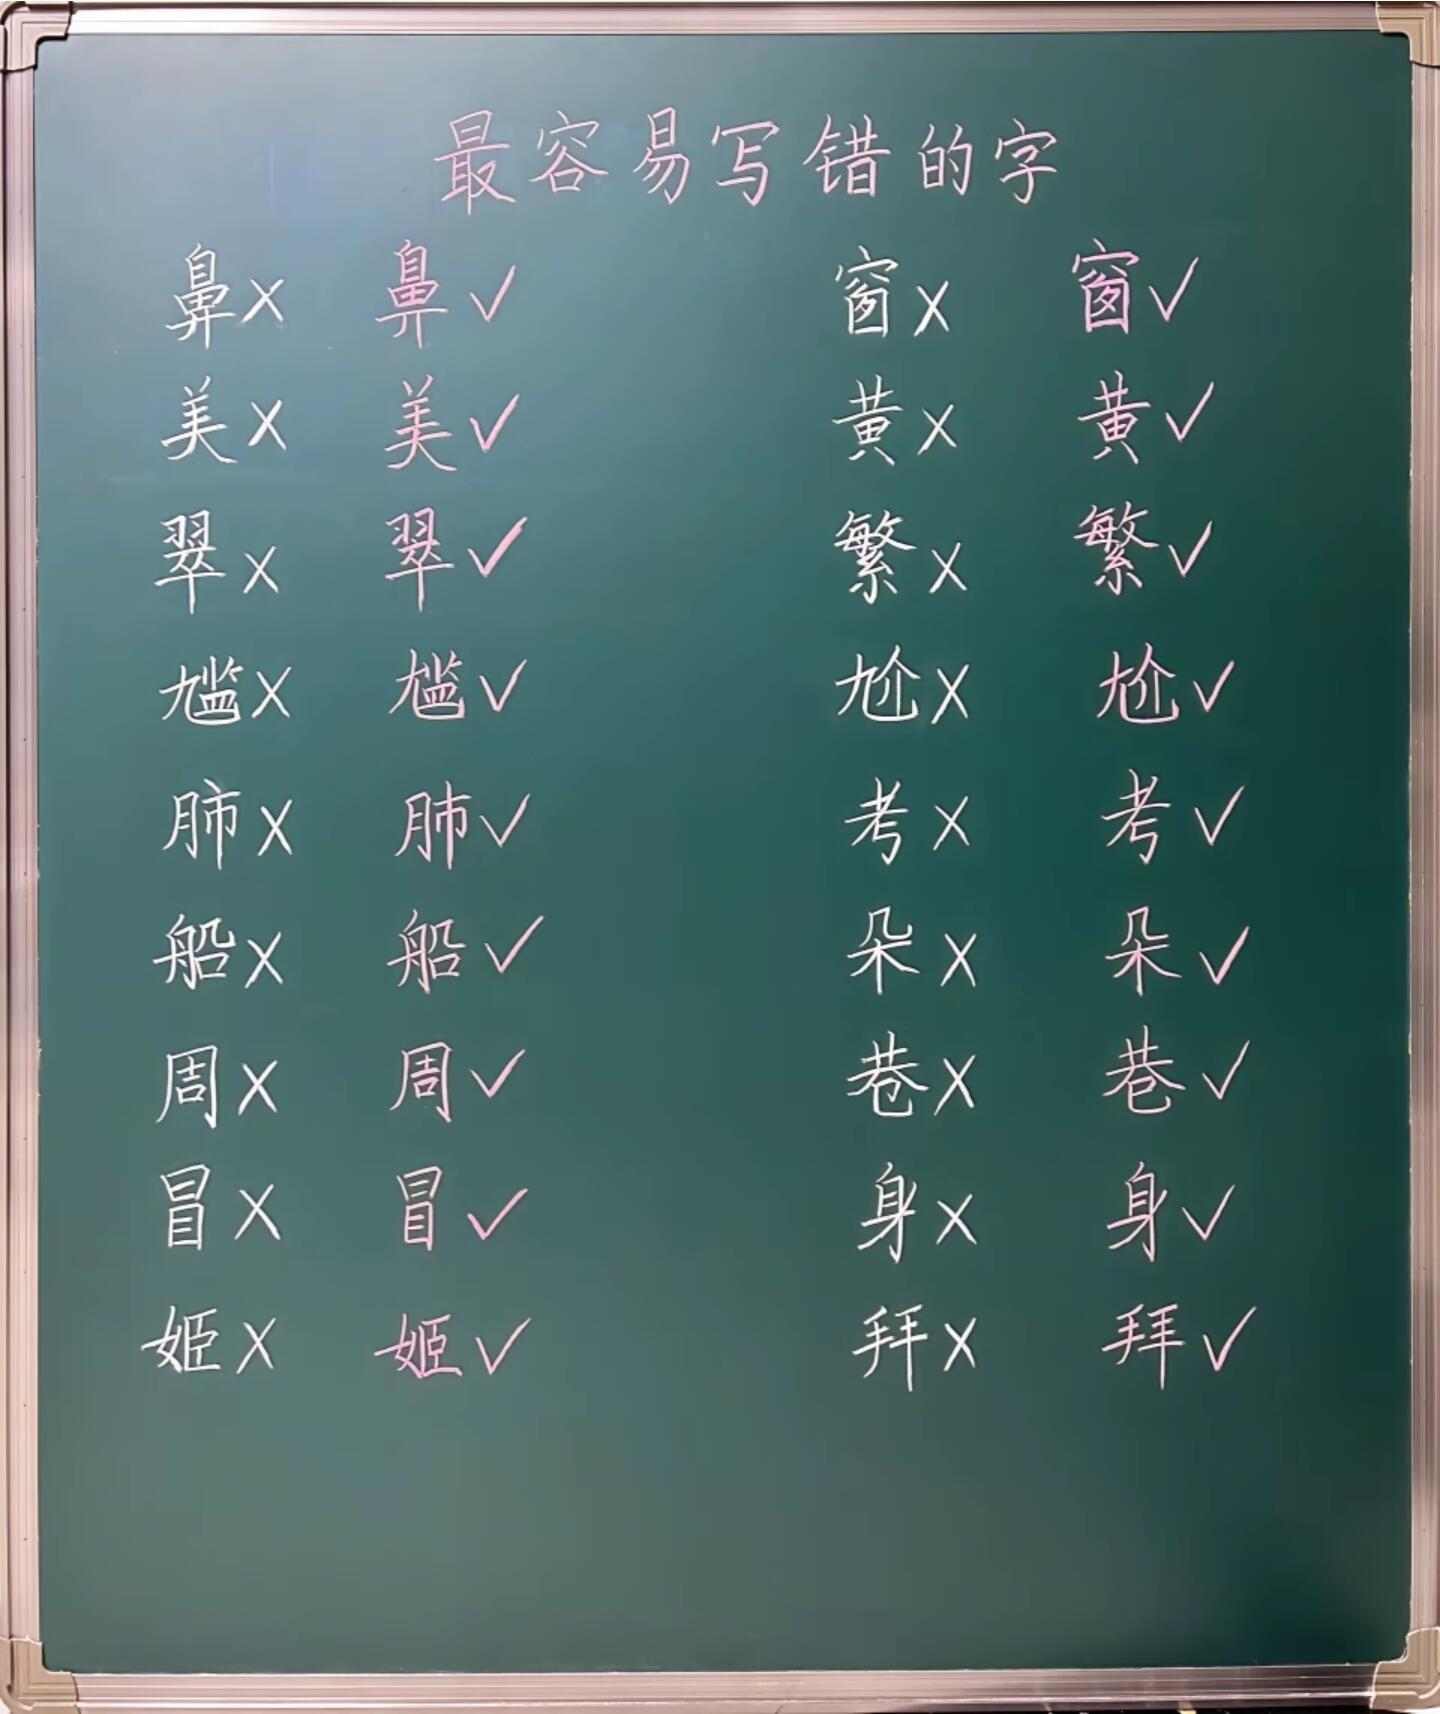 最容易写错的字
鼻× 鼻✓ 窗× 窗✓
美× 美✓ 黄× 黄✓
翠× 翠✓ 繁× 繁✓
尴× 尴✓ 尬× 尬✓
肺× 肺✓ 考× 考✓
船× 船✓ 朵× 朵✓
周× 周✓ 巷× 巷✓
冒× 冒✓ 身× 身✓
姬× 姬✓ 拜× 拜✓